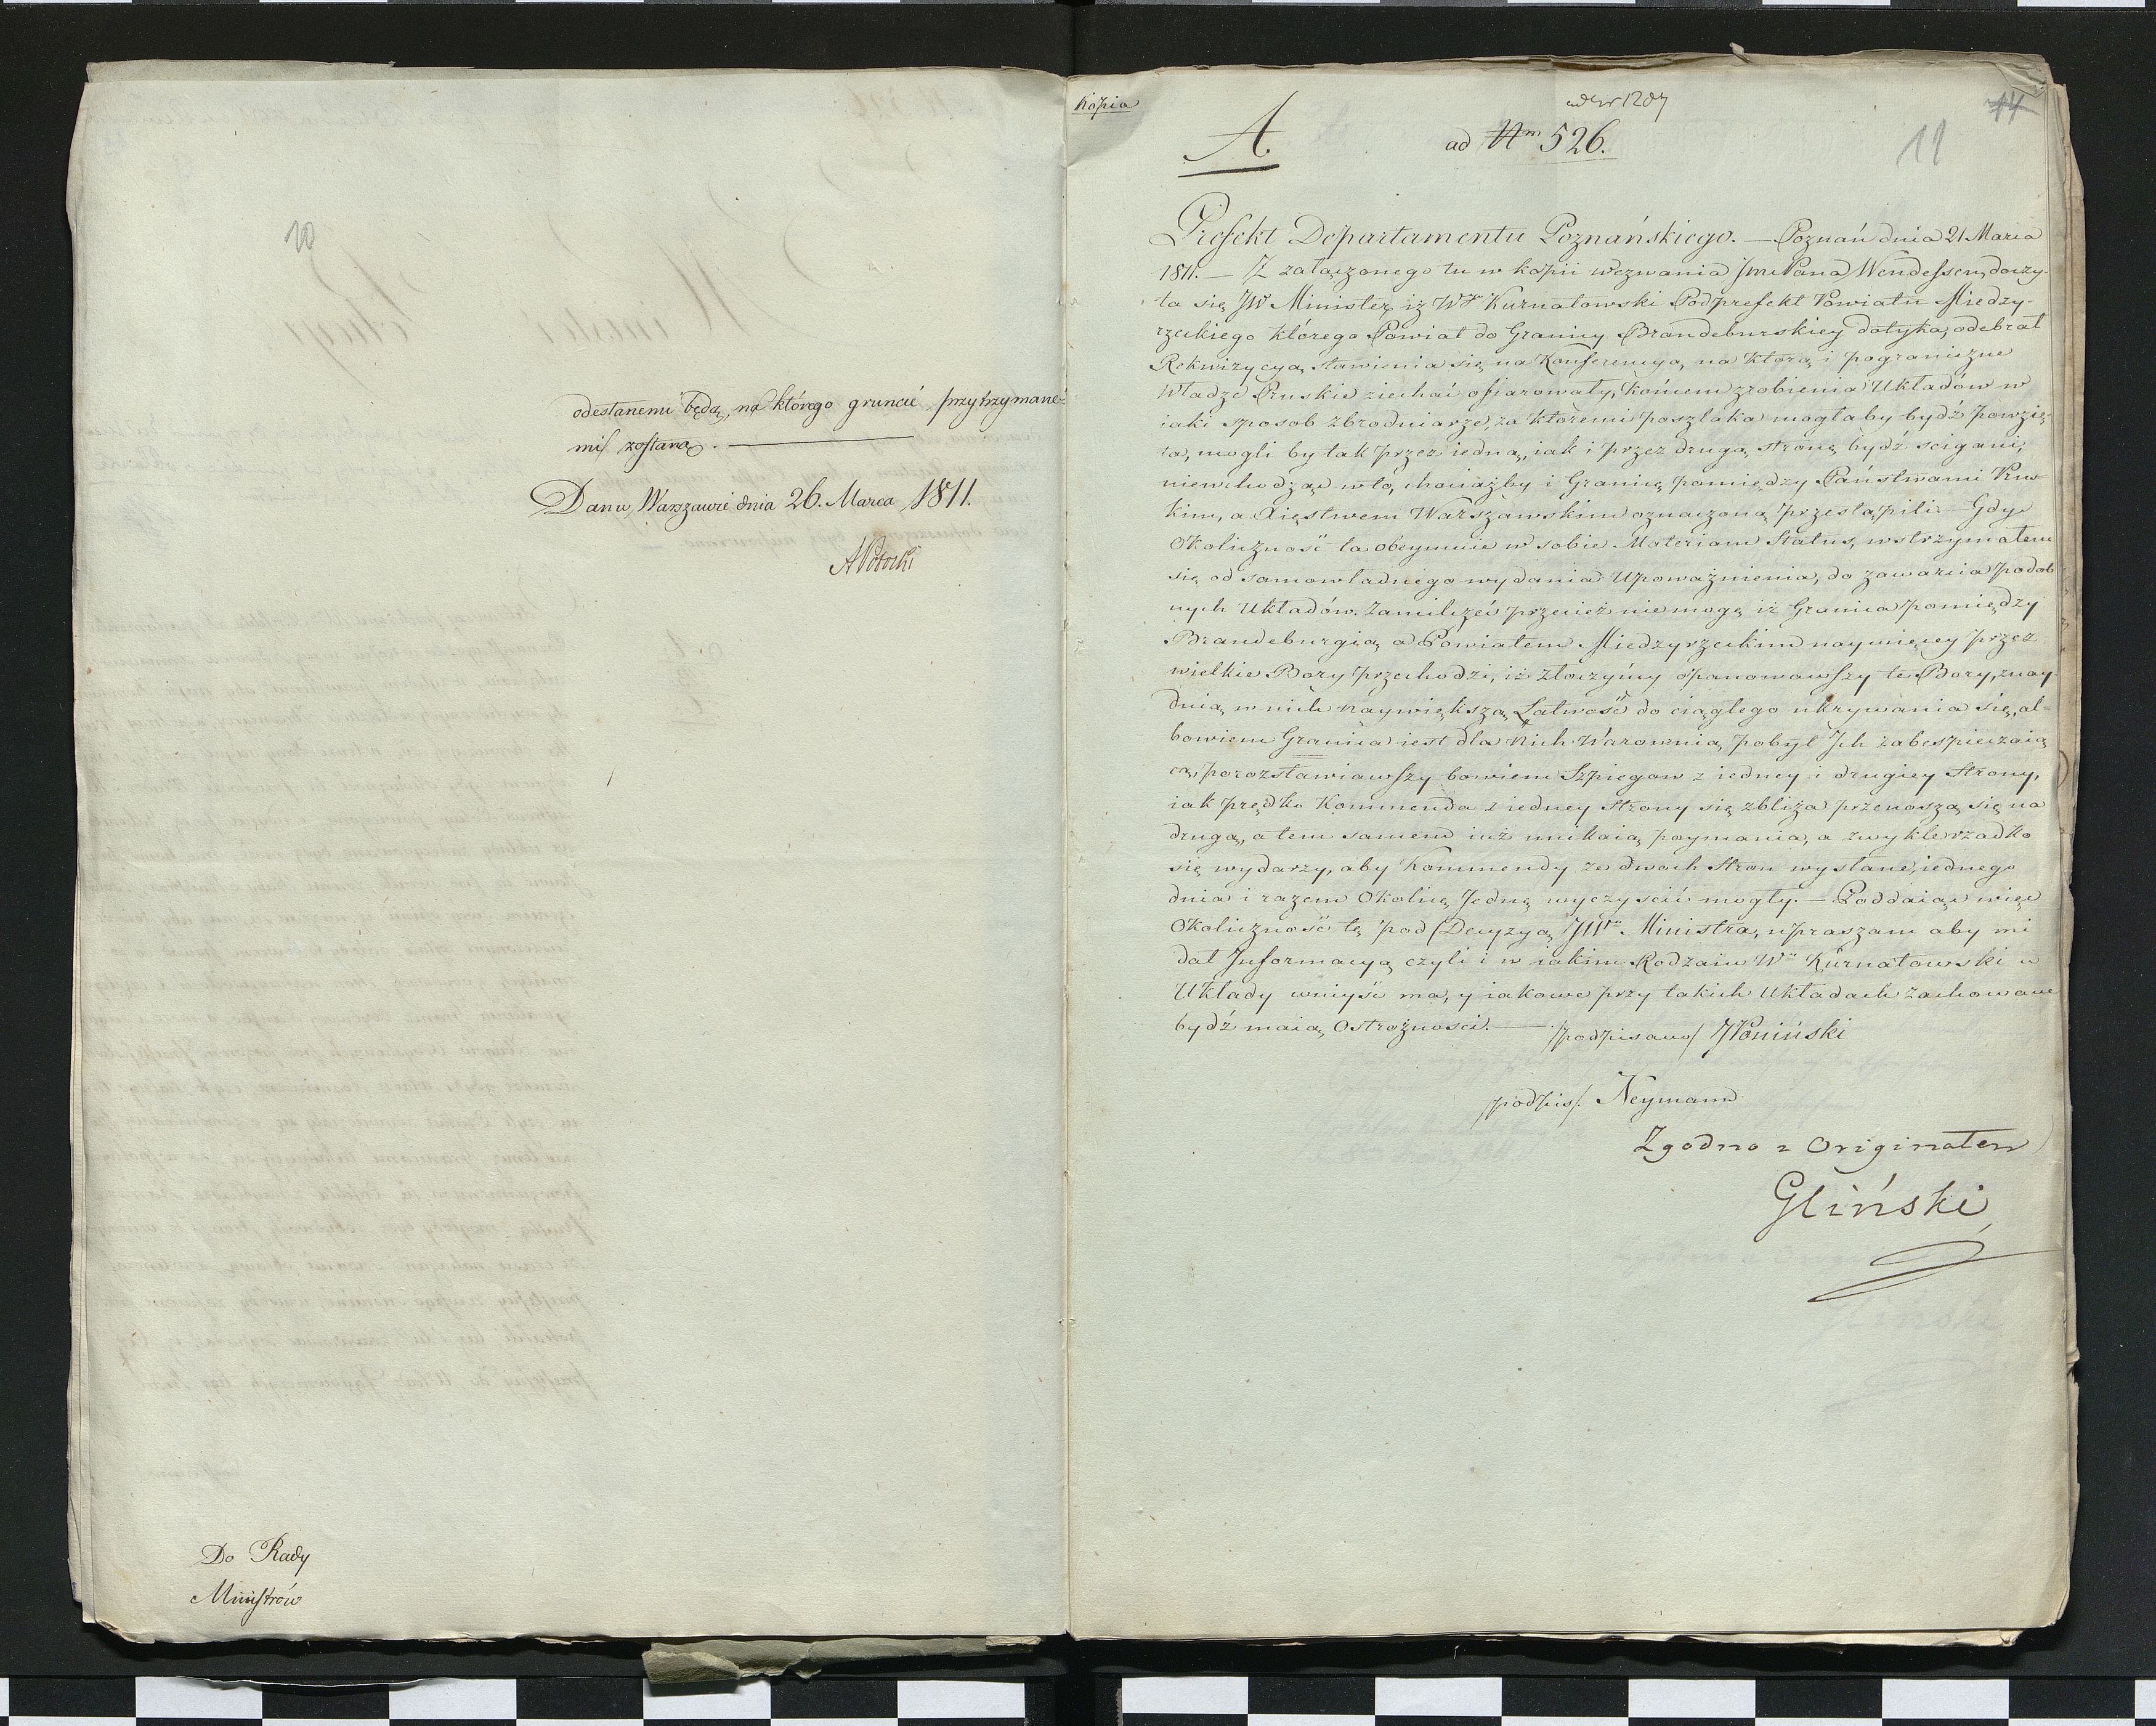 10
odesłanemi będą, na którego gruncie przytrzymané-
mi zostaną.
Dan w Warszawie dnia 26. Marca 1811.
APotocki
Do Rady
Ministrów
Kopia
ad Nr 1207
14
A
ad Nrm 526.
11
Prefekt Departamentu Poznańskiego. — Poznań dnia 21 Marca
1811. — Z załączonego tu w kopii wezwania Jmci Pana Wendessen, doczy-
ta się JW Minister, iż Wy Kurnatowski Podprefekt Powiatu Miedzy-
rzeckiego którego Powiat do Granicy Brandeburskiey dotyka, odebrał
Rekwizycyą stawienia się na Konferencyą, na którą i pograniczne
Władze Pruskie ziechać ofiarowały, końcem zrobienia Układów w
iaki sposob zbrodniarze, za ktoremi poszlaka mogłaby bydź powzię-
ta, mogli by tak przez iedną, iak i przez drugą stronę bydź scigani,
niewchodząc w to, chociażby i Granicę pomiędzy Państwami Prus-
kim, a Xięstwem Warszawskim oznaczoną przestąpili. — Gdy
Okoliczność ta obeymuie w sobie Materiam Status, wstrzymałem
się od samowładnego wydania Upoważnienia, do zawarcia podob
nych Układów. Zamilczéć przecież nie mogę iż Granica pomiędzy
Brandeburgią a Powiatem Miedzyrzeckim naywięcey przez
wielkie Bory przechodzi, iż złoczyńcy opanowawszy te Bory, znay-
dują w nich naywiększą Łatwość do ciągłego ukrywania się, al-
bowiem Granica iest dla Nich Warownią pobyt Jch zabespieczaią
cą, porozstawiawszy bowiem Szpiegow z iedney i drugiey Strony,
iak prędko Kommenda z iedney Strony się zbliża przenoszą się na
drugą, a tem samem iuż unikaią poymania, a zwykle rzadko
się wydarzy, aby Kommendy ze dwoch Stron wysłane, iednego
dnia i razem Okolicę Jedną wyczyscić mogły. — Poddaiąc więc
Okoliczność tę pod Decyzyą JWo Ministra, upraszam aby mi
dał Jnformacyą czyli i w iakim Rodzaiu Wy Kurnatowski w
Układy wniyść ma, y iakowe przy takich Układach zachowane
bydź maią Ostrożności. — /podpisano/ JPoniński
/podpis/. Neymann
Zgodno z Originałem
Gliński